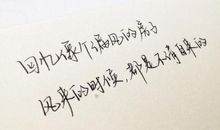 回忆像个漏风的房子
风来的时候，都是不请自来的